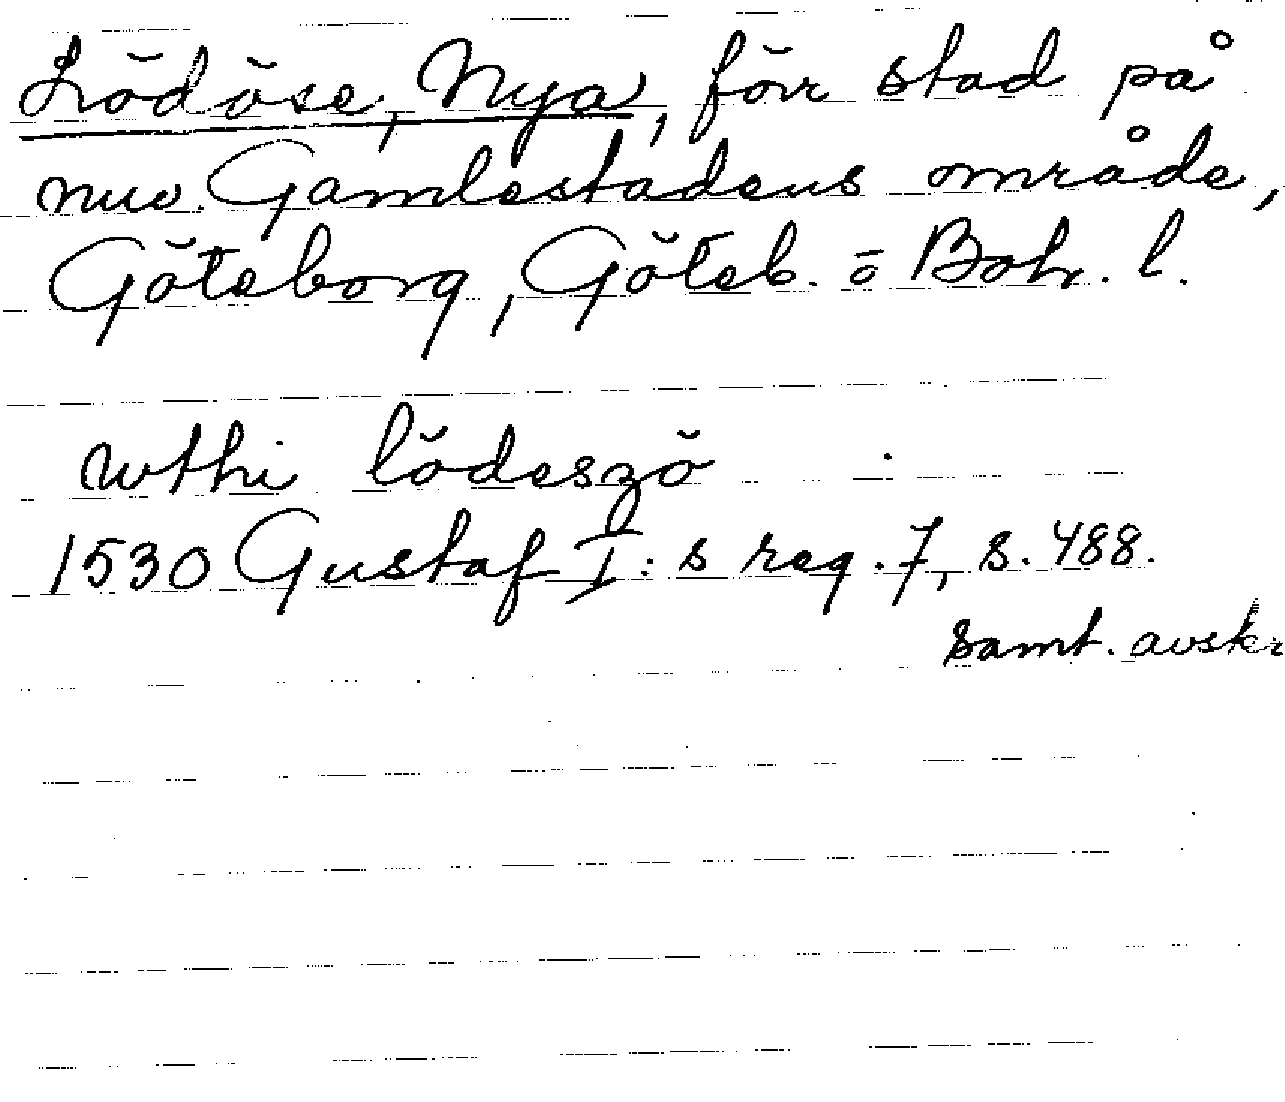 Lödöse, Nya, förr stad på
nuv. Gamlestadens område,
Göteborg, Göteb. o Boh. l.
wthi lödeszö
1530 Gustaf I:s reg. 7, s. 488.
samt. avskr